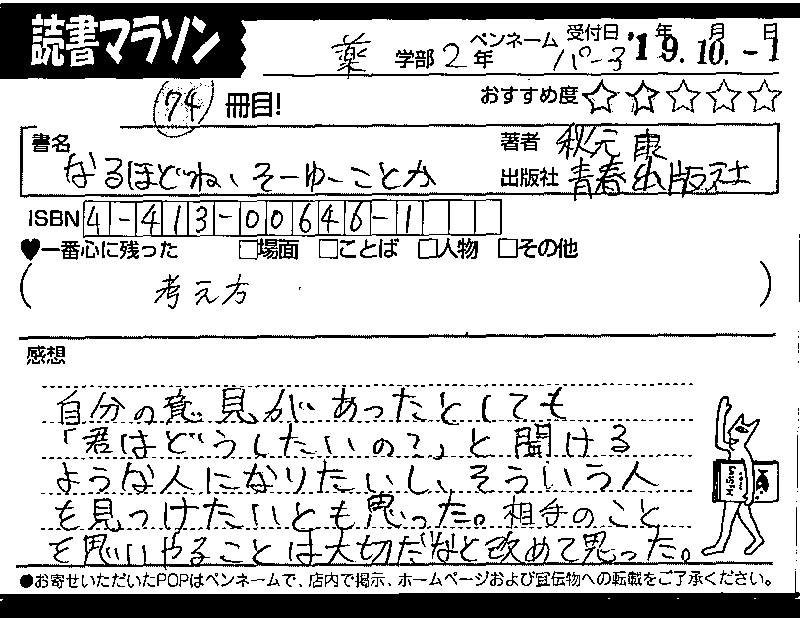 読書マラソン
薬 学部 2 年 ペンネーム パー子 受付日 '19年.10月.-1日
74 冊目! おすすめ度 ☆☆☆☆☆
書名 なるほどね、そーゆーことか
著者 秋元康
出版社 青春出版社
ISBN 4-413-00646-1
♥一番心に残った □場面 □ことば □人物 □その他
( 考え方 )
感想
自分の意見があったとしても
「君はどうしたいの?」と聞ける
ような人になりたいし、そういう人
を見つけたいとも思った。相手のこと
を思いやることは大切だなと改めて思った。
●お寄せいただいたPOPはペンネームで、店内で掲示、ホームページおよび宣伝物への転載をご了承ください。